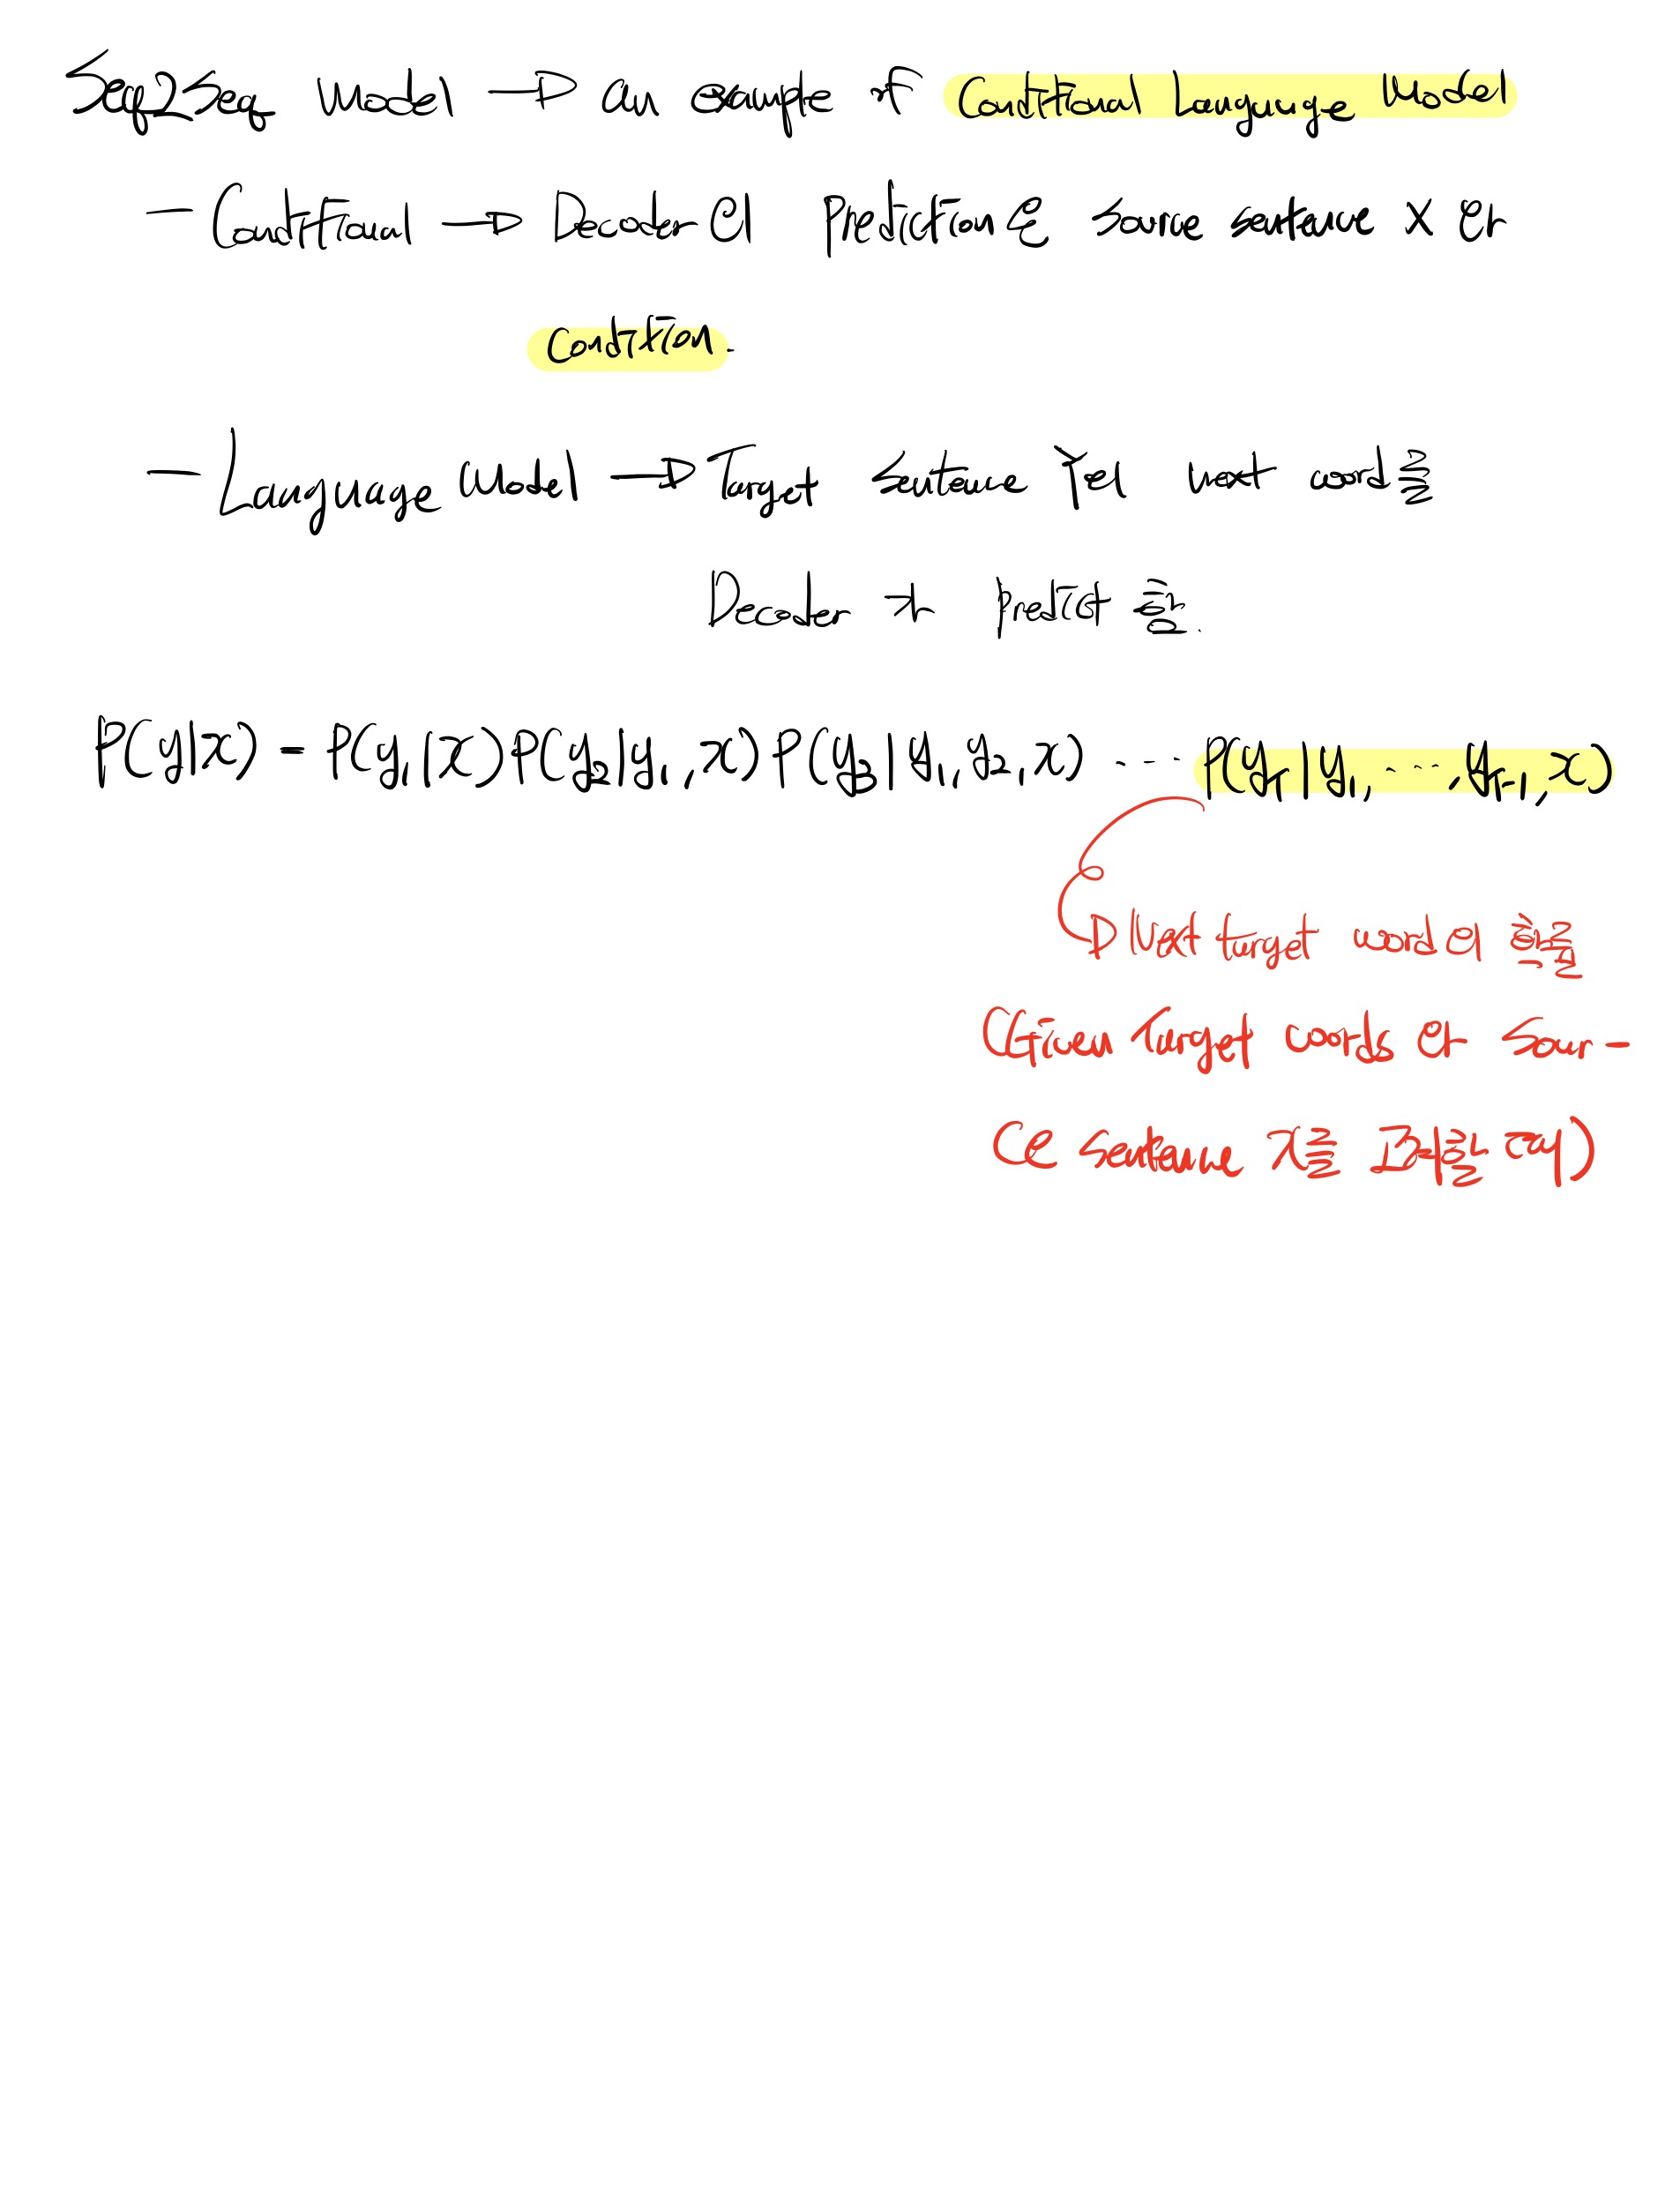 Seq2Seq Model → an example of Conditional Language Model
- Conditional → Decoder의 Prediction은 source sentence X와
condition.
- Language Model → Target Sentence Y의 next word를
Decoder가 predict 함.
P(y|x) = P(y₁|x)P(y₂|y₁,x)P(y₃|y₁,y₂,x) ... P(y_T|y₁,...,y_T-1,x)
→ Next target word의 확률
(Given Target words와 Sour-
ce sentence x를 고려할 때)